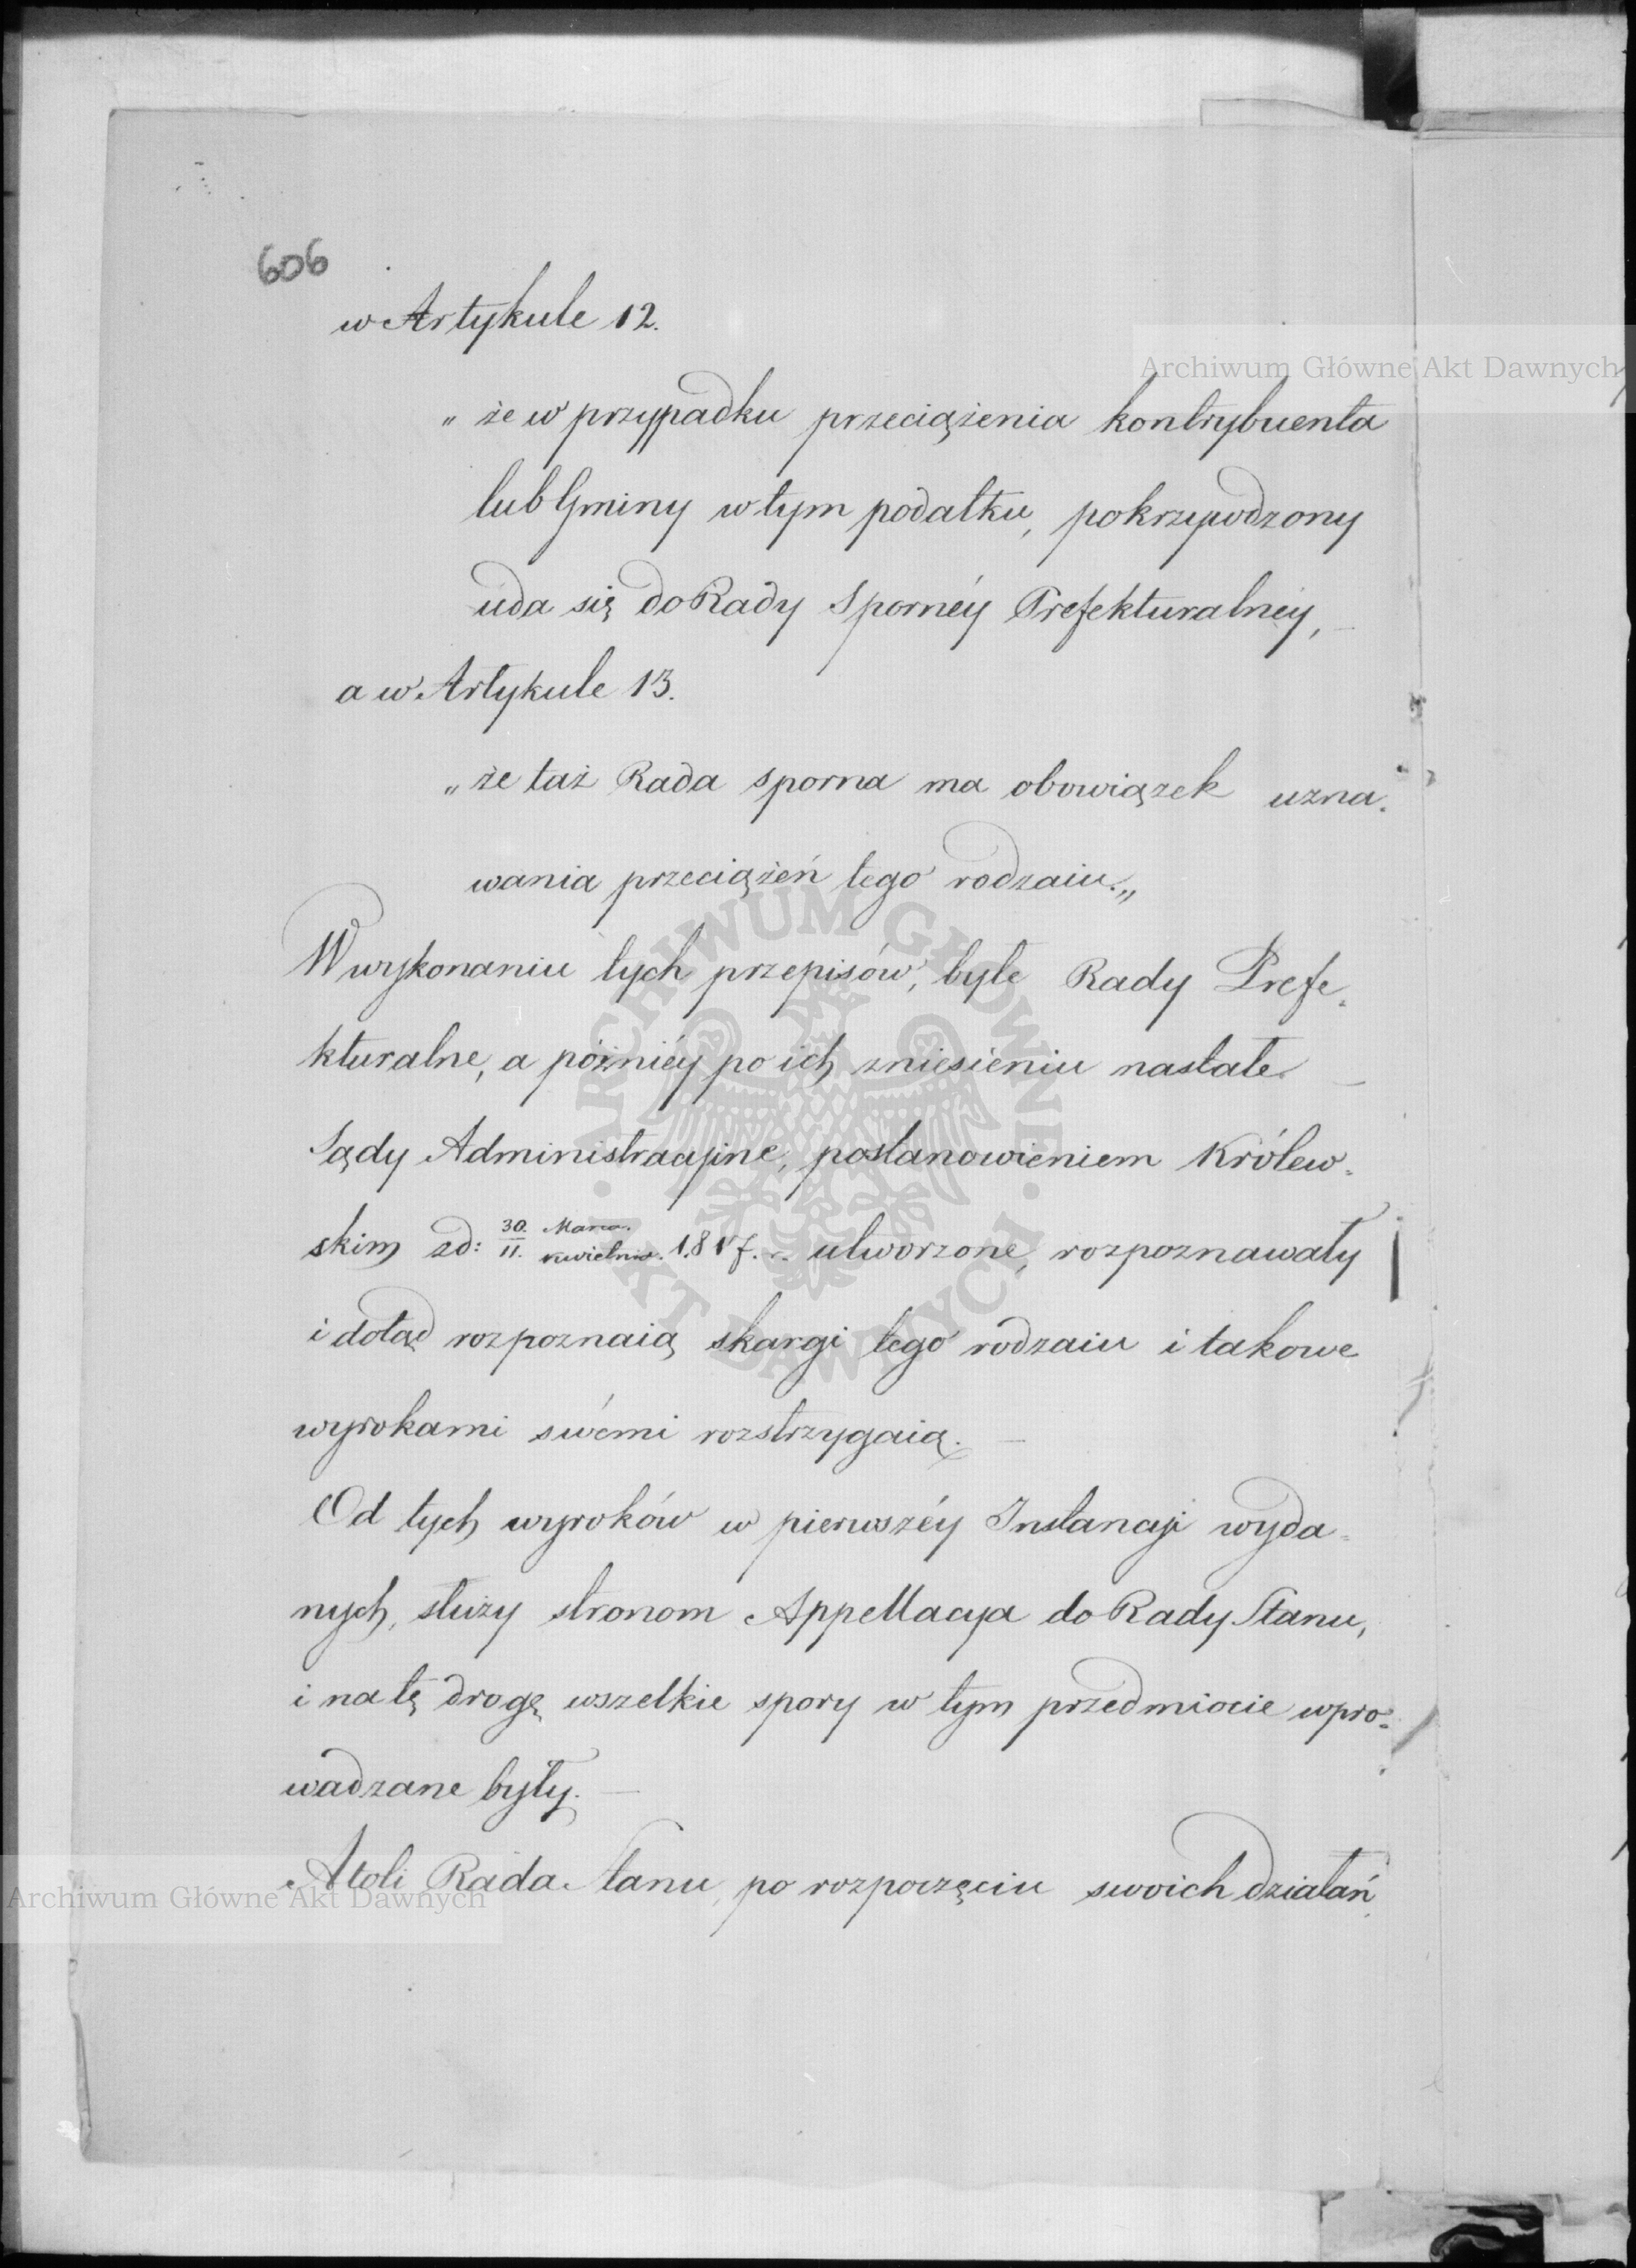 606
w Artykule 12.
Archiwum Główne Akt Dawnych
„ że w przypadku przeciążenia kontrybuenta
lub Gminy w tym podatku, pokrzywdzony
uda się do Rady Sporney Prefekturalney, —
a w Artykule 13.
„ że taż Rada sporna ma obowiązek uzna=
wania przeciążeń tego rodzaiu.„
W wykonaniu tych przepisów, byłe Rady Prefe=
kturalne, a póżniéy po ich zniesieniu nastałe —
Sądy Administracyine, postanowieniem Królew=
skim zd: 30. Marca. / 11. Kwietnia. 1817. r. utworzone, rozpoznawały
i dotąd rozpoznaią skargi tego rodzaiu i takowe
wyrokami swemi rozstrzygaią. —
Od tych wyroków w pierwszéy Instancyi wyda=
nych, służy stronom Appellacya do Rady Stanu,
i na tę drogę wszelkie spory w tym przedmiocie wpro=
wadzane były. —
Atoli Rada Stanu, po rozpoczęciu swoich działań
Archiwum Główne Akt Dawnych
ARCHIWUM GŁÓWNE · AKT DAWNYCH ·